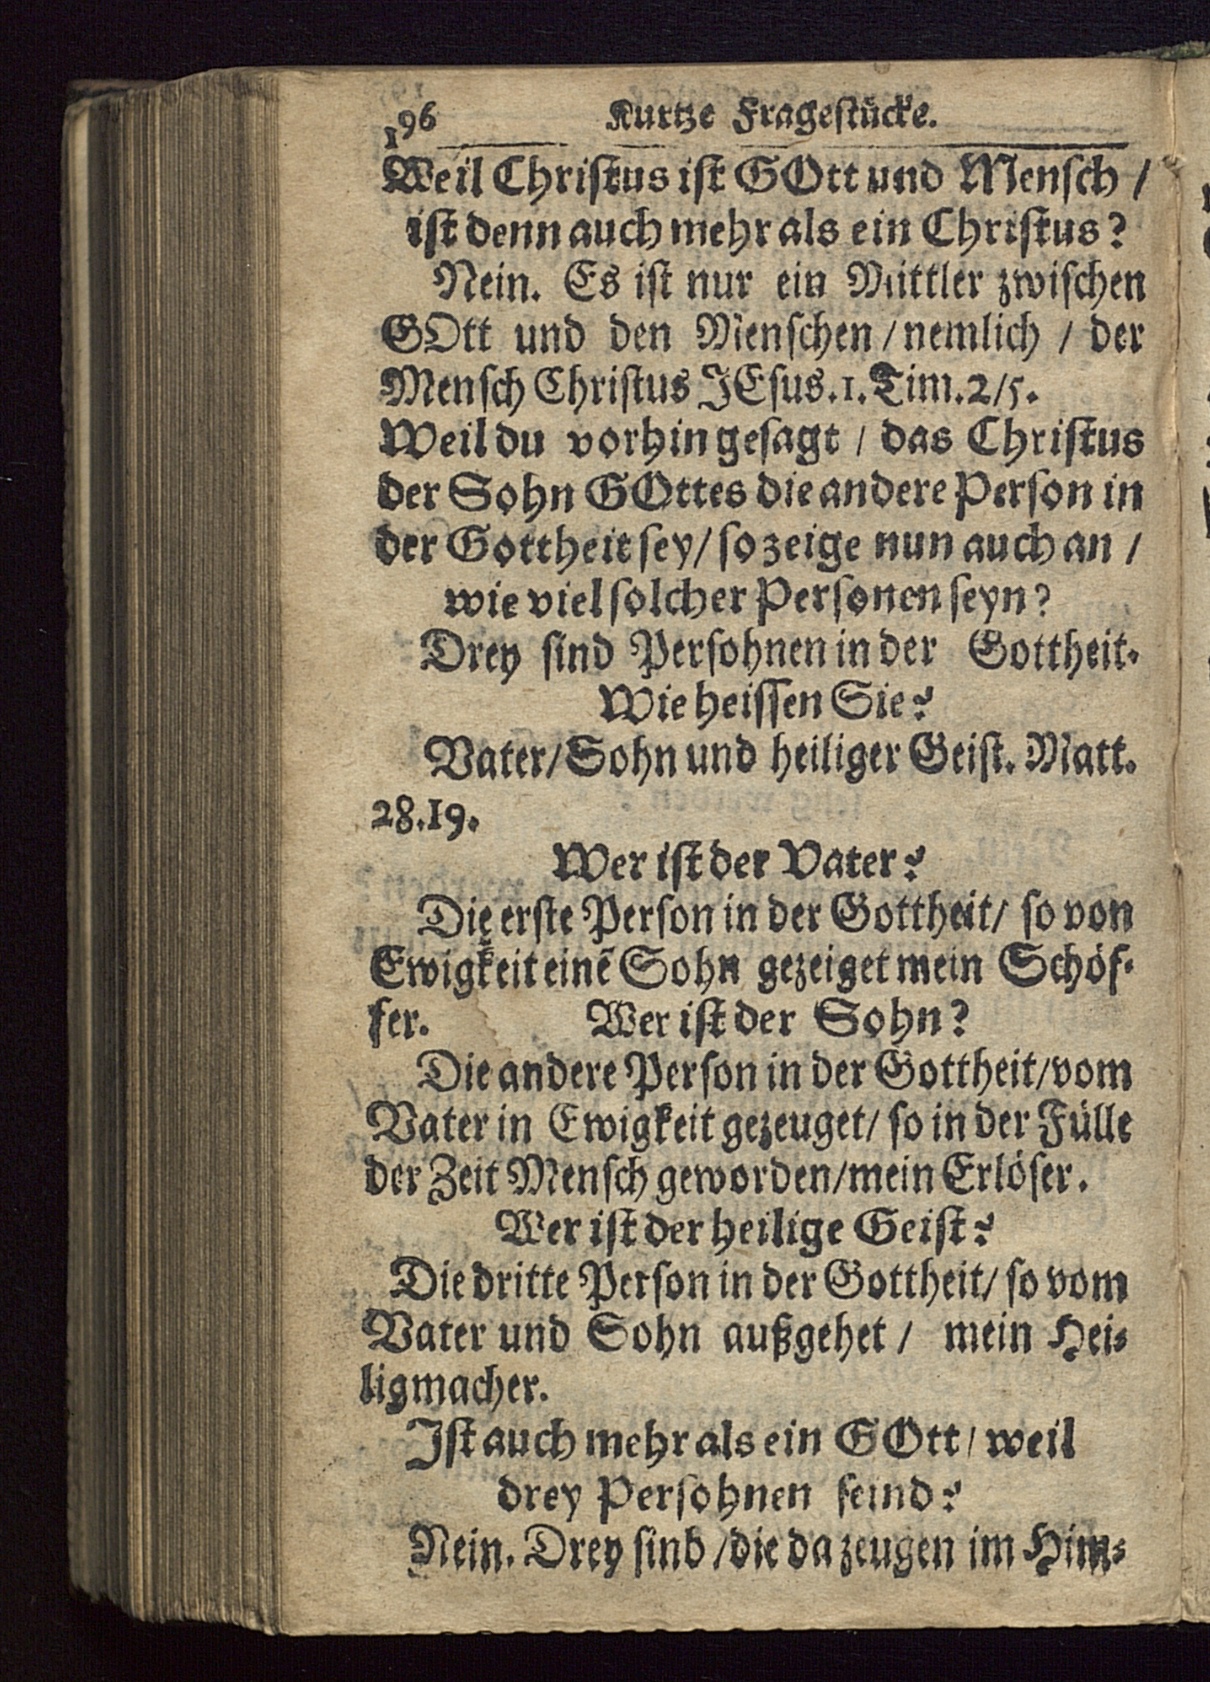 196 Kurtze Fragestücke.
Weil Christus ist GOtt und Mensch /
ist denn auch mehr als ein Christus?
Nein. Es ist nur ein Mittler zwischen
GOtt und den Menschen / nemlich / der
Mensch Christus JEsus. 1. Tim. 2/5.
Weil du vorhin gesagt / das Christus
der Sohn GOttes die andere Person in
der Gottheit sey/ so zeige nun auch an /
wie viel solcher Personen seyn?
Drey sind Persohnen in der Gottheit.
Wie heissen Sie?
Vater/ Sohn und heiliger Geist. Matt.
28.19.
Wer ist der Vater?
Die erste Person in der Gottheit/ so von
Ewigkeit einē Sohn gezeiget mein Schöf-
fer. Wer ist der Sohn?
Die andere Person in der Gottheit/vom
Vater in Ewigkeit gezeuget/ so in der Fülle
der Zeit Mensch geworden/mein Erlöser.
Wer ist der heilige Geist?
Die dritte Person in der Gottheit/ so vom
Vater und Sohn außgehet / mein Hei-
ligmacher.
Ist auch mehr als ein GOtt/ weil
drey Persohnen seind?
Nein. Drey sind /die da zeugen im Him-